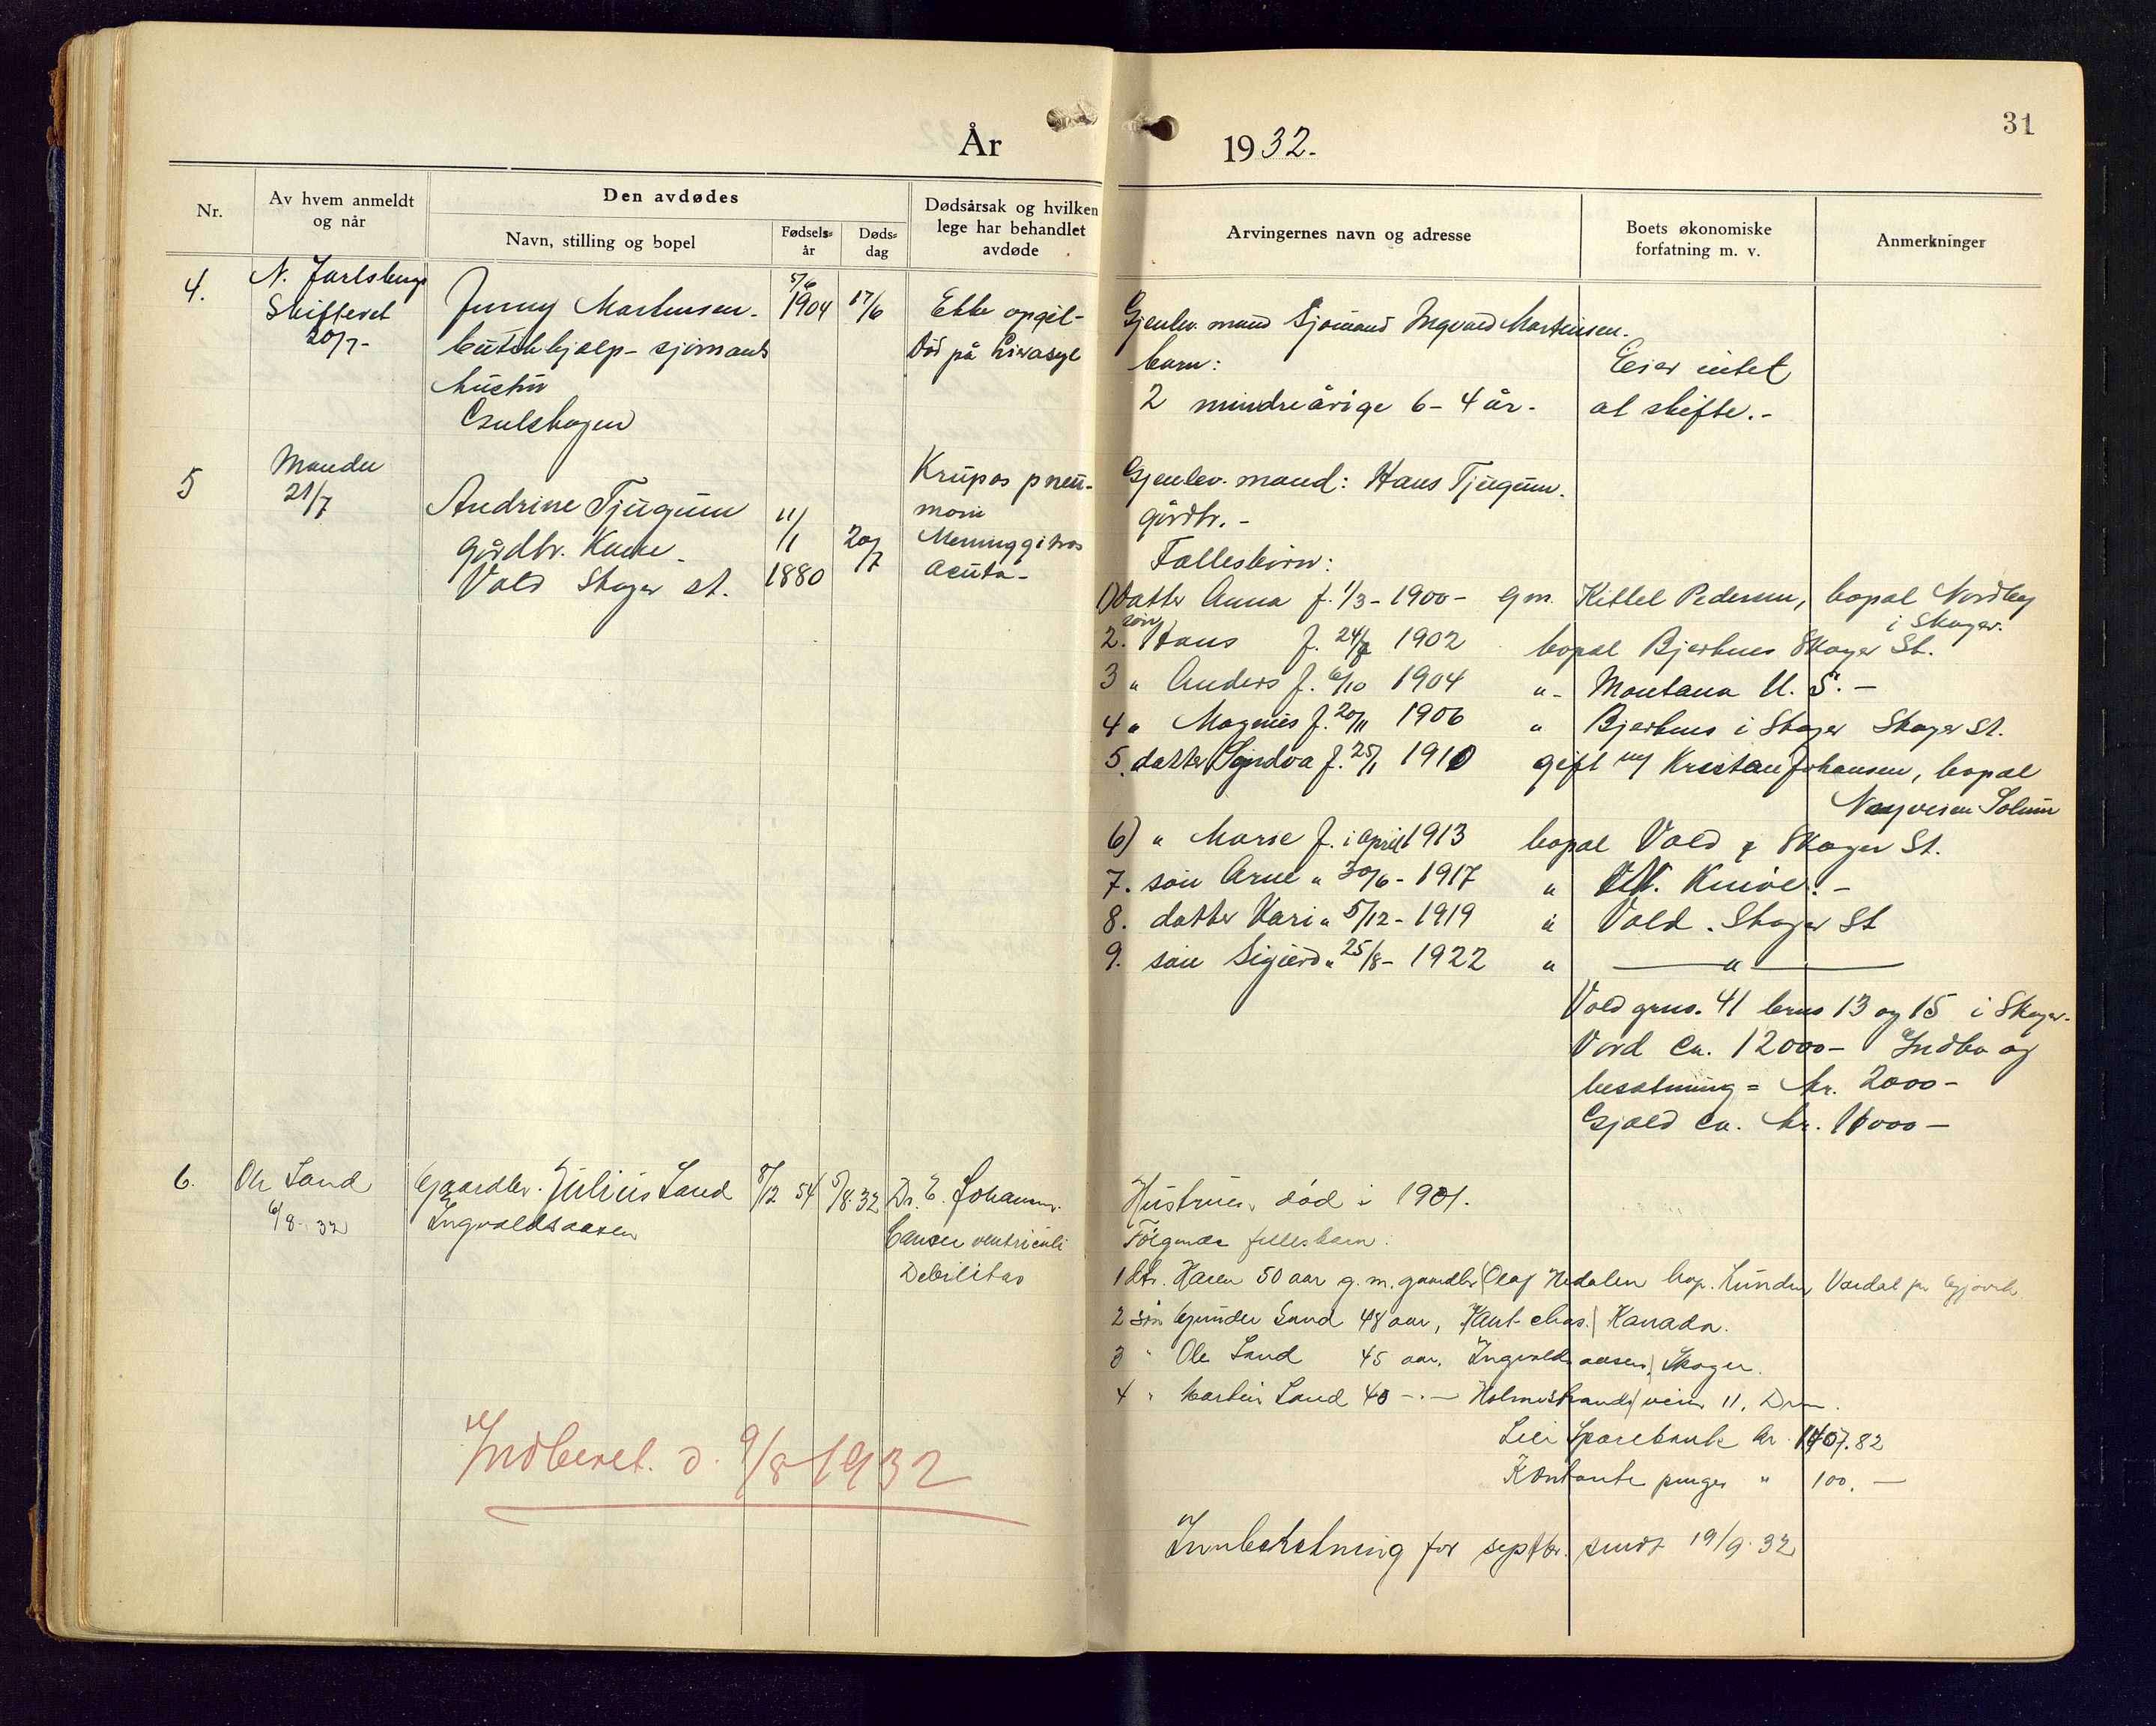 31
År 1932.
Nr.
Av hvem anmeldt
og når
Den avdødes
Navn, stilling og bopel
Fødsels-
år
Døds-
dag
Dødsårsak og hvilken
lege har behandlet
avdøde
Arvingernes navn og adresse
Boets økonomiske
forfatning m. v.
Anmerkninger
4.
N. Jarlsberg
Skifteret
20/7-
Jenny Martinsen.
sjømands
hustru
5/6
1904
17/6
Ikke opgit-
Død på Lierasyl
Gjenlev. mand Sjømand Ingvald Martinsen.
barn:
2 mindreårige 6-4 år.-
Eier intet
at skifte.-
5
Manden
21/7
Andrine Tjugum
gårdbr. Kone.
Vold Skoger st.
11/1
1880
20/7
Krupøs pneu-
moni
Acuta-
Gjenlev. mand: Hans Tjugum.
gårdbr.-
Fællesbørn:
1) Datter Anna f. 1/3-1900- gm. Kittel Pedersen, bopæl Nordby
i Skoger.
2. søn Hans f. 24/ 1902 bopæl Bjerknes Skoger St.
3 " Anders f. 6/10 1904 "- Montana U. S.-
4 " Magnus f. 20/11 1906 " Bjerknes i Skoger Skoger St.
5. datter f. 25/1 1910 gift m/ Kristian Johansen, bopæl
Solum
6) " Marie f. i april 1913 bopæl Vold Skoger St.
7. søn Arne " 30/6-1917 " Knive.-
8. datter Kari " 5/12-1919 " Vold. Skoger St
9. søn Sigurd " 25/8-1922 " "
Vold grns. 41 brns 13 og 15 i Skoger.
Verd ca. 12000- Indbo og
besætning = kr. 2000-
Gjæld ca. kr. 11000-
6.
Ole Sand
6/8-32
Gaardbr. Julius Sand
Ingvaldsaasen
8/12 54
5/8-32
Dr. E. Johansen.
Cancer ventriculi
Debilitas
Hustruen død i 1901.
Følgende fellesbarn:
1 dtr. Karen 50 aar g. m. gaardbr. Olaf Hedalen bop. Vardal pr Gjøvik
2 søn Gunder Sand 48 aar, Kanada.
3 " Ole Sand 45 aar, Ingvaldsaasen, Skoger.
4 " Martin Sand 40 -"- Holmestrandsveien 11, Drm.
Lier Sparebank kr. 1407.82
Kontante penger " 100.-
Indberet. d. 9/8 1932
Innberetning for septbr. sendt 19/9-32